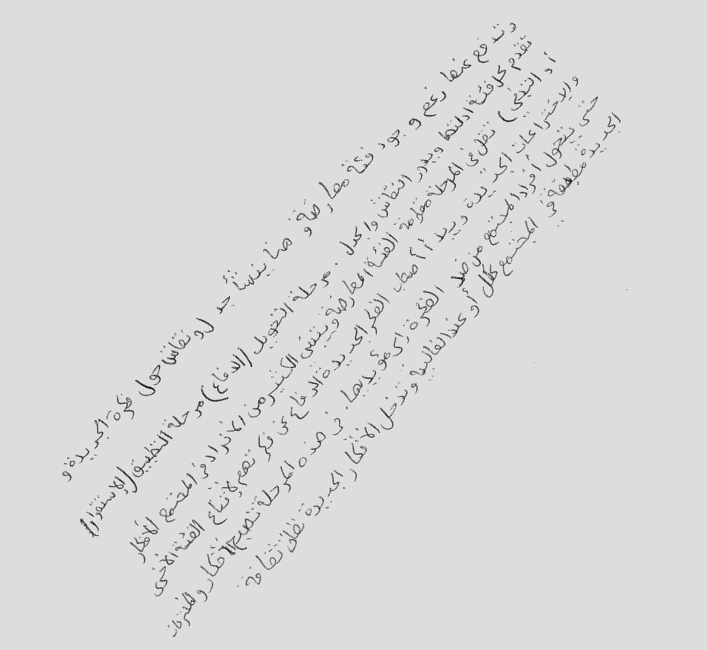 وتدافع عنها رغم وجود فئة معارضة و هنا ينشأ جدل و نقاش حول فكرة الجديدة و
تقدم كل فئة ادلتها ويدور النقاش والجدل . مرحلة التحويل (الدفاع) مرحلة التطبيق (الإستقرار
أو التبني) تقل في المرحلة مقاومة الفئة المعارضة ويتبنى الكثير من الأفراد في المجتمع الأفكار
والاختراعات الجديدة ويبدأ أصحاب الفكر الجديدة الدفاع عن فكرتهم لإقناع الفئة الأخرى
حتى يتحول أفراد المجتمع من ضد الفكرة إلى مؤيديها. في هذه المرحلة تصبح الأفكار والمخترعات
الجديدة مطبقة في المجتمع ككل أو عند الغالبية وتدخل الأفكار الجديدة نطاق ثقافة